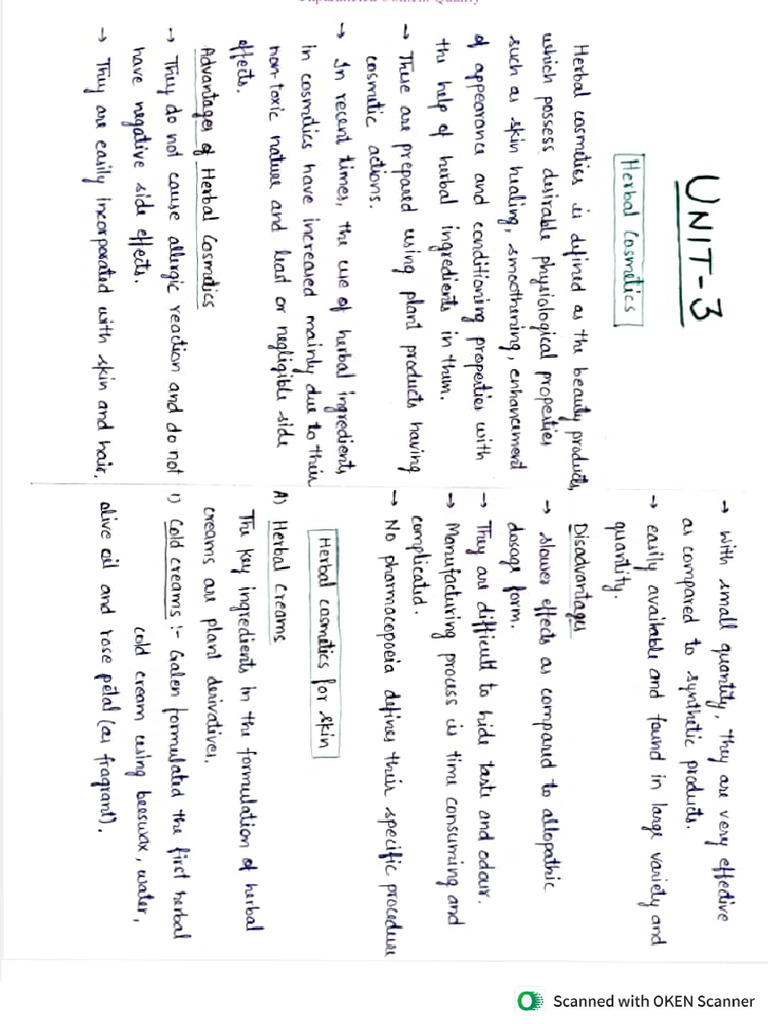 UNIT-3
Herbal Cosmetics
Herbal cosmetics is defined as the beauty products,
which possess desirable physiological properties
such as skin healing, smoothening, enhancement
of appearance and conditioning properties with
the help of herbal ingredients in them.
→ These are prepared using plant products having
cosmetic actions.
→ In recent times, the use of herbal ingredients
in cosmetics have increased mainly due to their
non-toxic nature and least or negligible side
effects.
Advantages of Herbal Cosmetics
→ They do not cause allergic reaction and do not
have negative side effects.
→ They are easily incorporated with skin and hair.
→ With small quantity, they are very effective
as compared to synthetic products.
→ easily available and found in large variety and
quantity.
Disadvantages
→ slower effects as compared to allopathic
dosage form.
→ They are difficult to hide taste and odour.
→ Manufacturing process is time consuming and
complicated.
→ No pharmacopoeia defines their specific procedure
Herbal cosmetics for skin
A) Herbal Creams
The key ingredients in the formulation of herbal
creams are plant derivatives.
1) Cold creams :- Galen formulated the first herbal
cold cream using beeswax, water,
olive oil and rose petal (as fragrant).
Scanned with OKEN Scanner